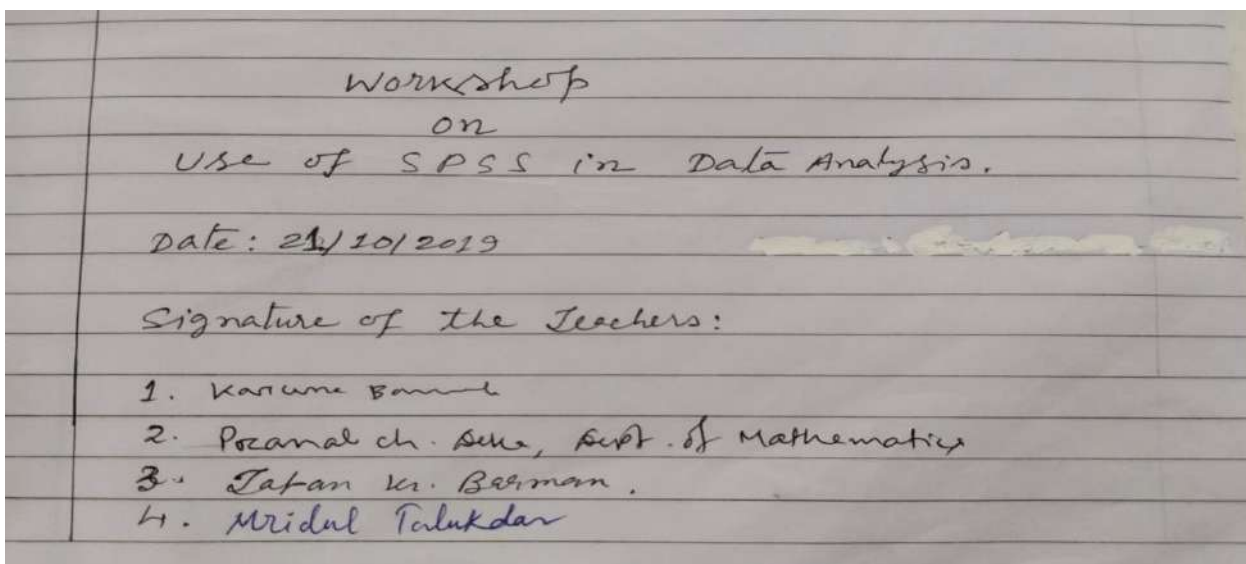 Workshop
on
Use of SPSS in Data Analysis.
Date: 21/10/2019
Signature of the Teachers:
1. Karuna
2. Pranal ch. Deka, Dept. of Mathematics
3. Tapan kr. Barman.
4. Mridul Talukdar